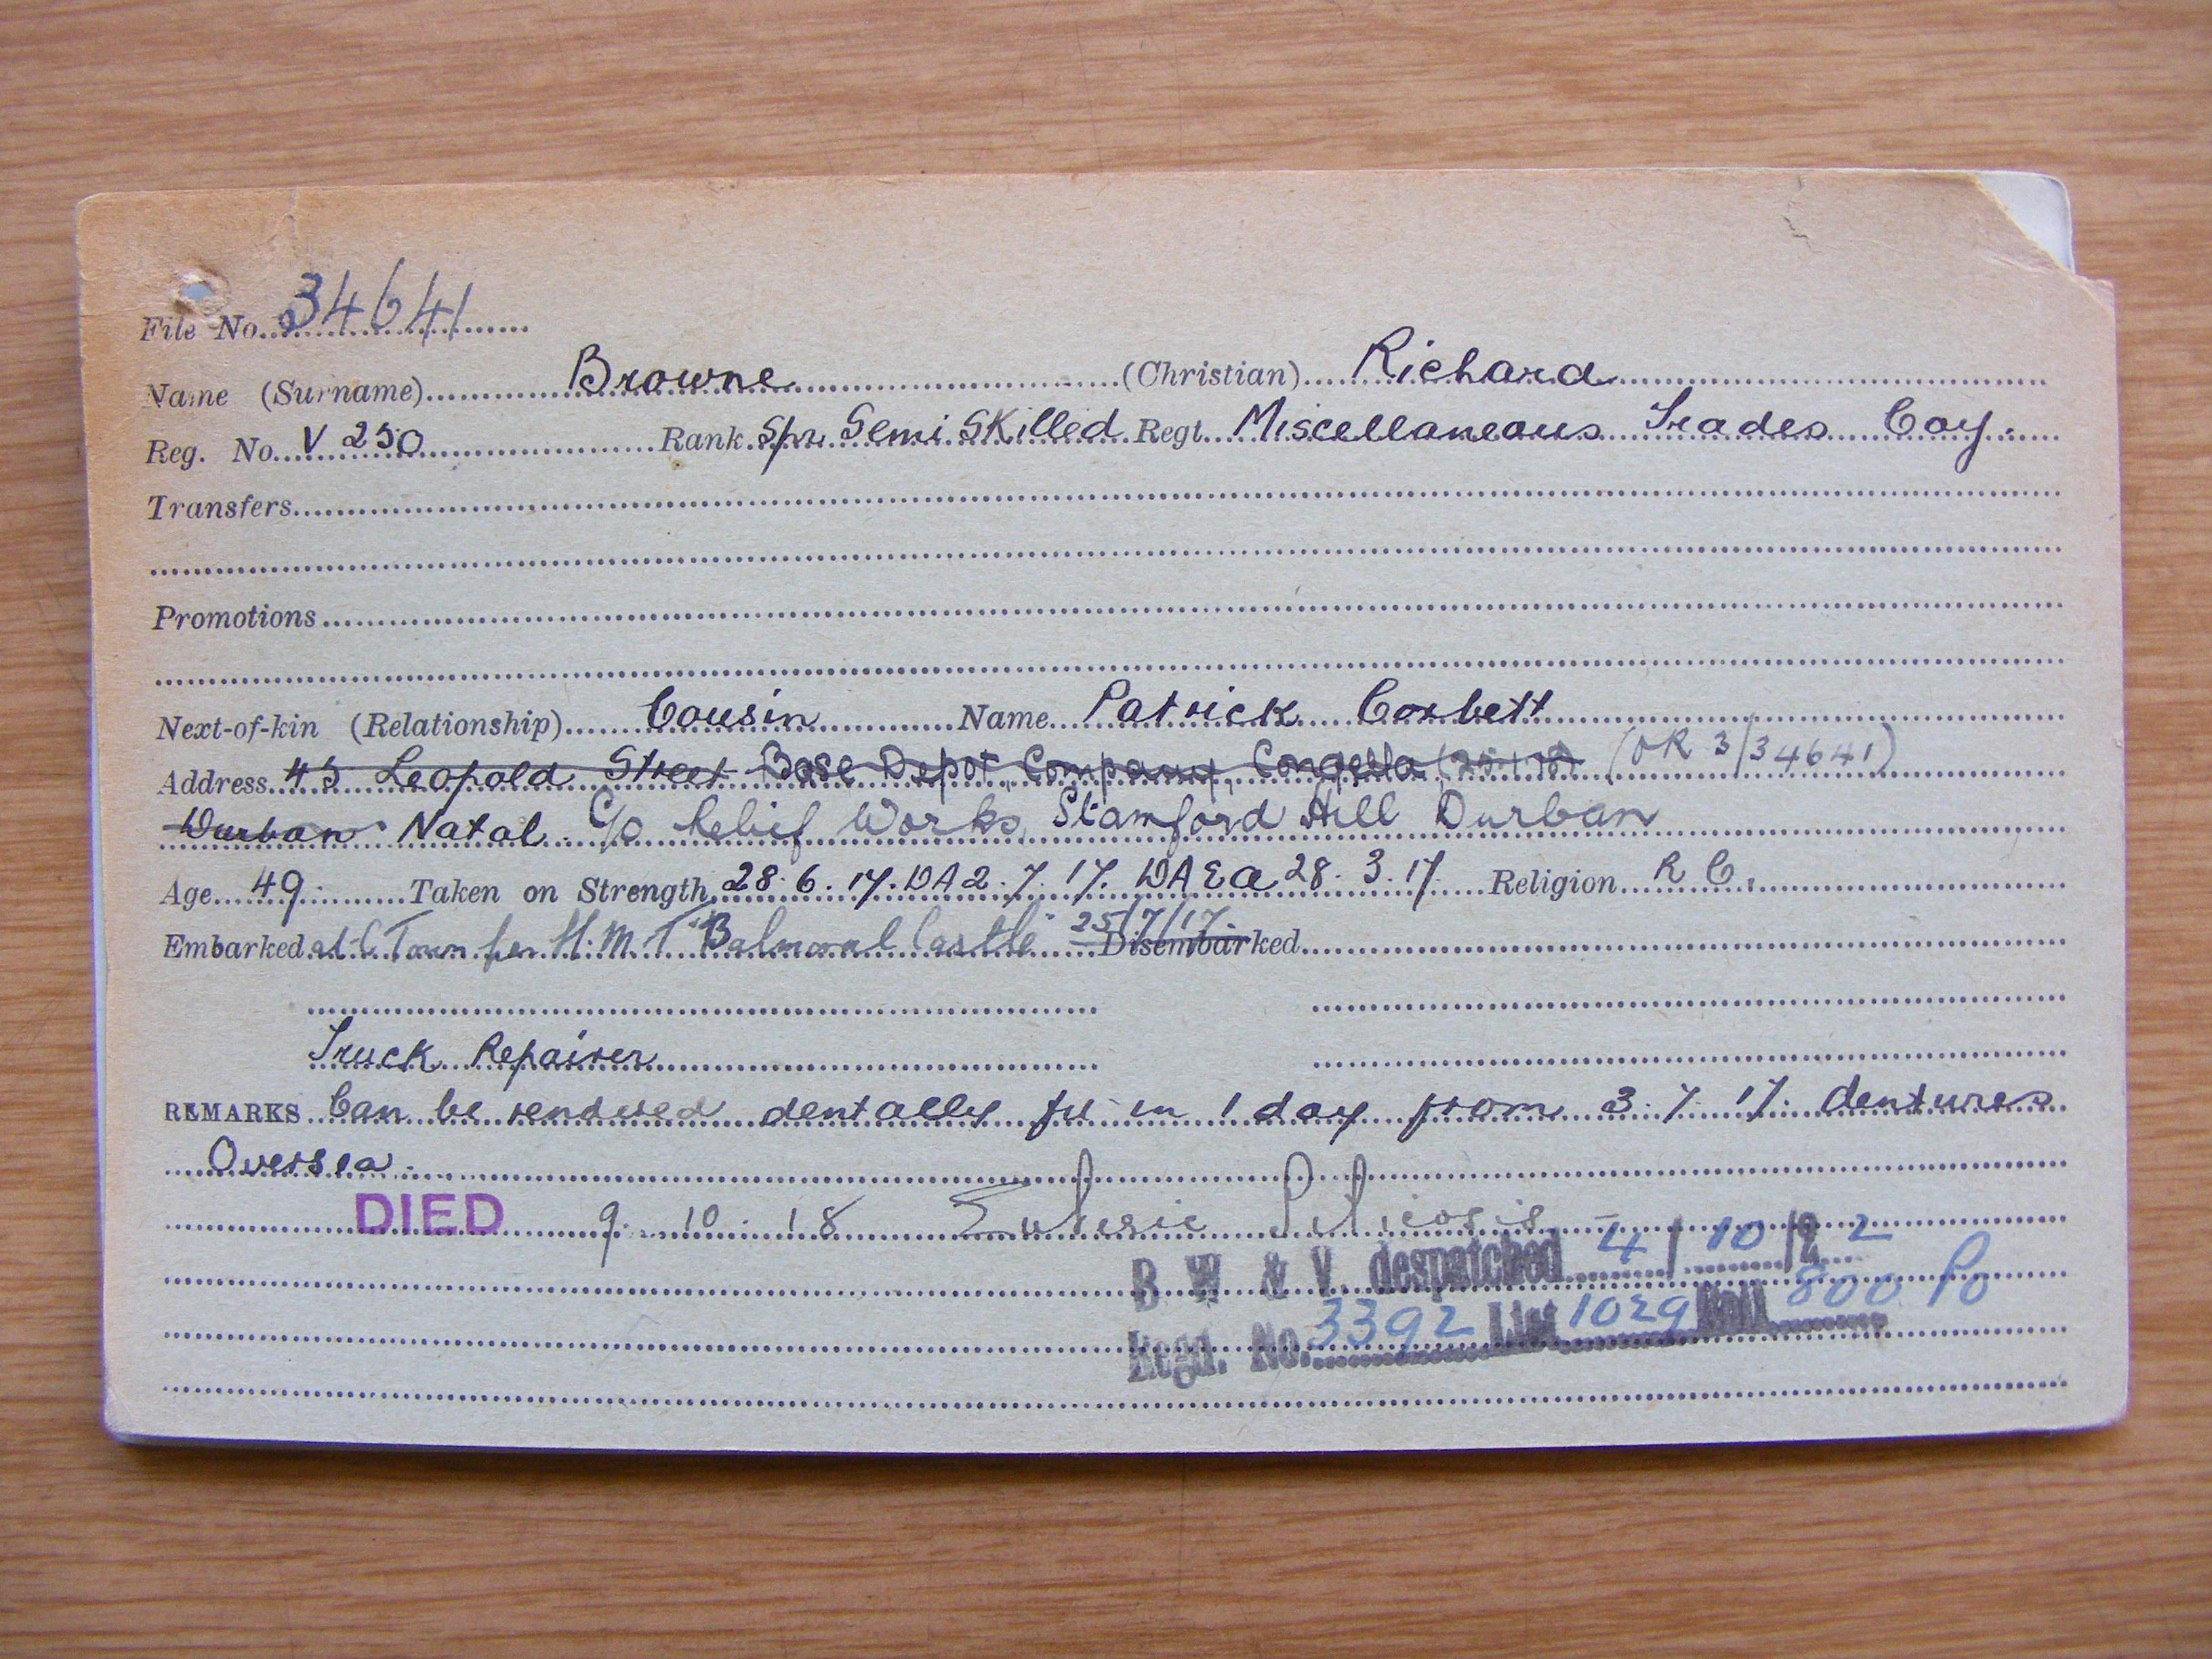 File No. 34641
Name (Surname) Browne (Christian) Richard
Reg. No. V 250 Rank Spr. Semi Skilled Regt. Miscellaneous Trades Coy.
Transfers
Promotions
Next-of-kin (Relationship) Cousin Name Patrick Corbett
Address 45 Leopold Street Base Depot Company, Congella (OR 3/34641)
Durban Natal C/o Relief Works, Stamford Hill Durban
Age 49 Taken on Strength 28.6.17. DA 2.7.17. DA &a 28.3.17 Religion R C.
Embarked at C Town per H.M.T. "Balmoral Castle" 25/7/17. Disembarked
Truck Repairer
REMARKS Can be rendered dentally fit in 1 day from 3.7.17. dentures
Oversea.
DIED 9.10.18
B W & V. despatched 4/10/22
Regd. No. 3392 List 1029 Roll 800 Po